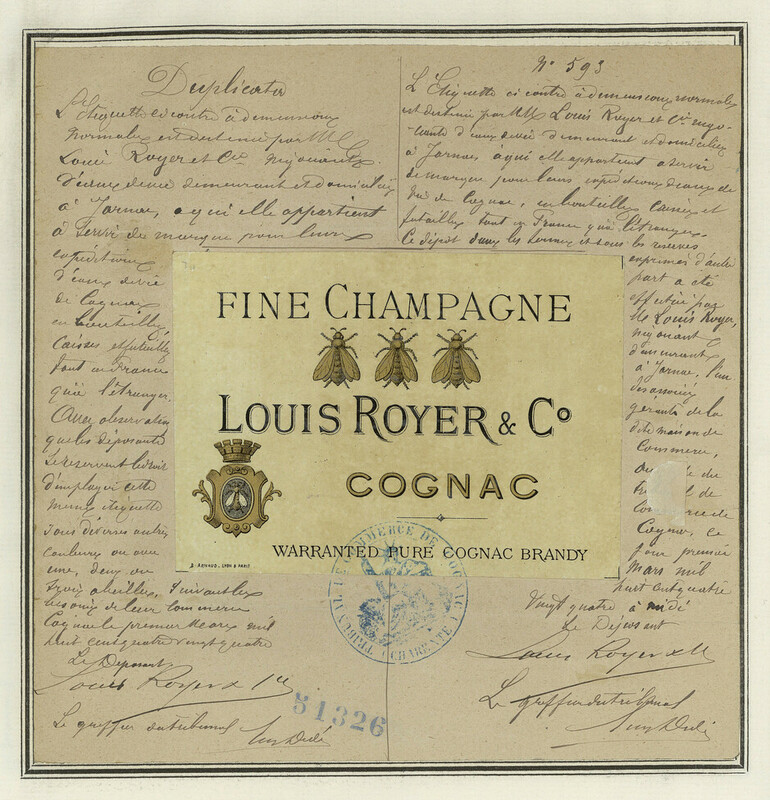 Duplicata
L'Etiquette ci contre à dimensions
normales est destinée par MM
Louis Royer et Cie négociants
d'eaux de vie demeurant et domiciliés
à Jarnac, à qui elle appartient
à servir de marque pour leurs
expéditions
d'eaux de vie
de Cognac
en bouteilles,
caisses et futailles
tant en France
qu'à l'étranger.
Avec observation
que les déposants
se réservent le droit
d'employer cette
même étiquette
sous diverses autres
couleurs ou avec
une, deux ou
trois abeilles, suivant les
besoins de leur commerce
Cognac le premier Mars mil
huit cent quatre vingt quatre
Le Déposant
Louis Royer & Cie
Le greffier du tribunal
N° 593
L'Etiquette ci contre à dimensions normales
est destinée par MM Louis Royer et Cie négo-
ciants d'eaux de vie demeurant et domiciliés
à Jarnac à qui elle appartient à servir
de marque pour leurs expéditions d'eaux de
vie de Cognac, en bouteilles, caisses et
futailles tant en France qu'à l'étranger.
Ce dépôt dans les termes et sous les réserves
exprimées d'autre
part a été
effectué par
Mr Louis Royer,
négociant
demeurant
à Jarnac, l'un
des associés
gérants de la
dite maison de
Commerce,
au du
de
de
Cognac, ce
jour premier
Mars mil
huit cent quatre
vingt quatre à midi
Le Déposant
Louis Royer & Cie
Le greffier du tribunal
FINE CHAMPAGNE
LOUIS ROYER & Co
COGNAC
WARRANTED PURE COGNAC BRANDY
B. ARNAUD, LYON & PARIS
TRIBUNAL DE COMMERCE DE COGNAC CHARENTE
51326